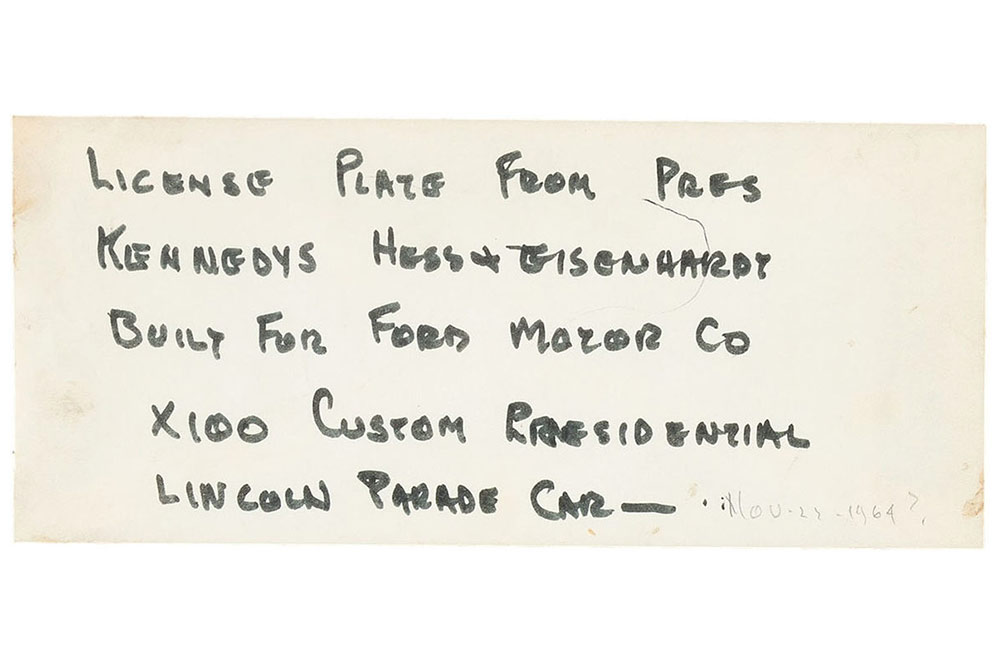 LICENSE PLATE FROM PRES
KENNEDYS HESS & EISENHARDT
BUILT FOR FORD MOTOR CO
X100 CUSTOM PRESIDENTIAL
LINCOLN PARADE CAR — NOV-22-1964?